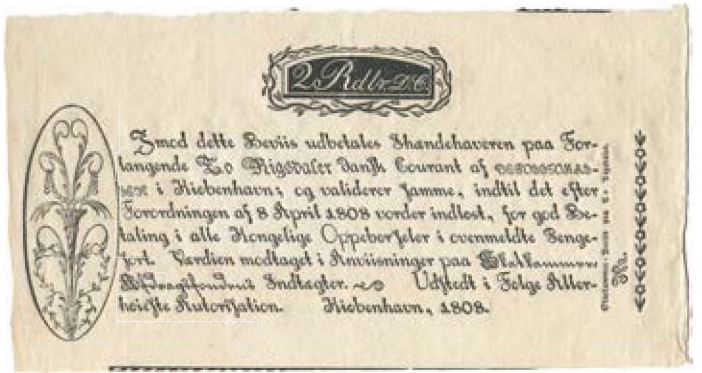 2 Rdlr. D. C.
Imod dette Beviis udbetales Ihændehaveren paa For-
langende To Rigsdaler Dansk Courant af DEPOSITOKAS-
SEN i Kiøbenhavn; og validerer samme, indtil det efter
Forordningen af 8 April 1808 vorder indløst, for god Be-
taling i alle Kongelige Oppebørseler i ovenmeldte Penge-
sort. Værdien modtaget i Anviisninger paa Skatkammer-
Afdragsfondens Indtægter. Udstedt i Følge Aller-
høieste Autorisation. Kiøbenhavn, 1808.
Beviis paa To Rigsdaler.
No.